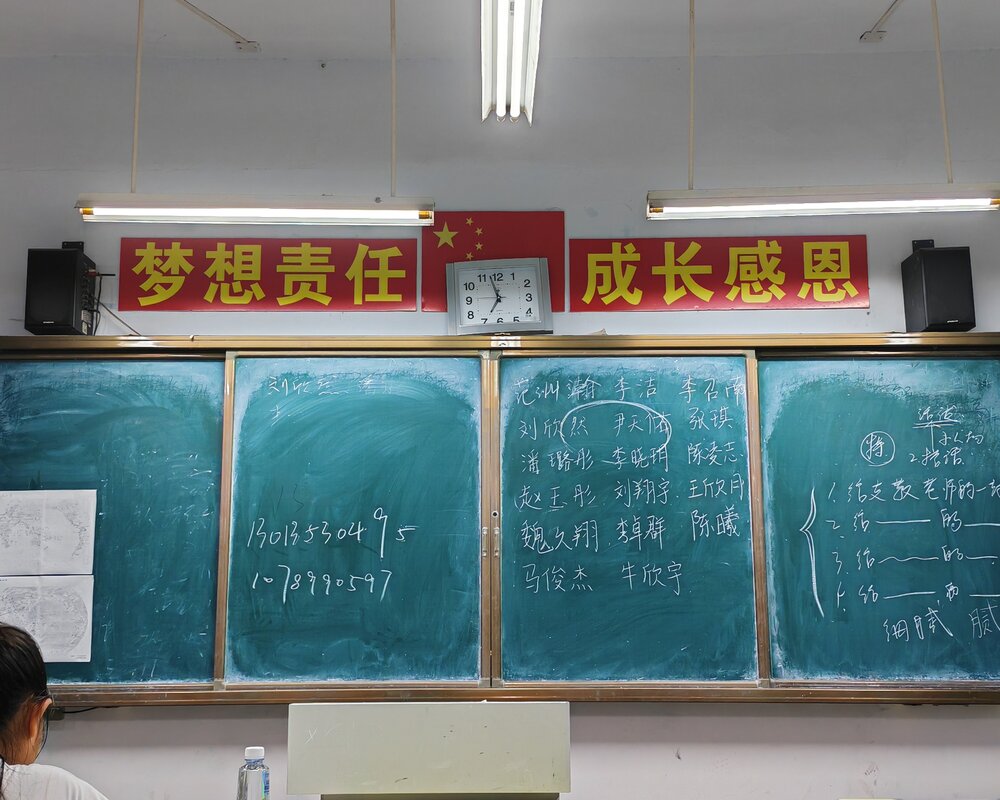 梦想责任
成长感恩
11 12 1
10 2
9 3
8 4
7 6 5
刘欣然
13013530495
1078990597
范洲瀚 李洁 李召南
刘欣然 尹天佑 张琪
潘璐彤 李晓玥 陈凌志
赵玉彤 刘翔宇 王欣月
魏久翔 李卓群 陈曦
马俊杰 牛欣宇
小人物
1. 给支教老师的一封
2. 给——的
3. 给——的
4. 给——的
细腻 腻